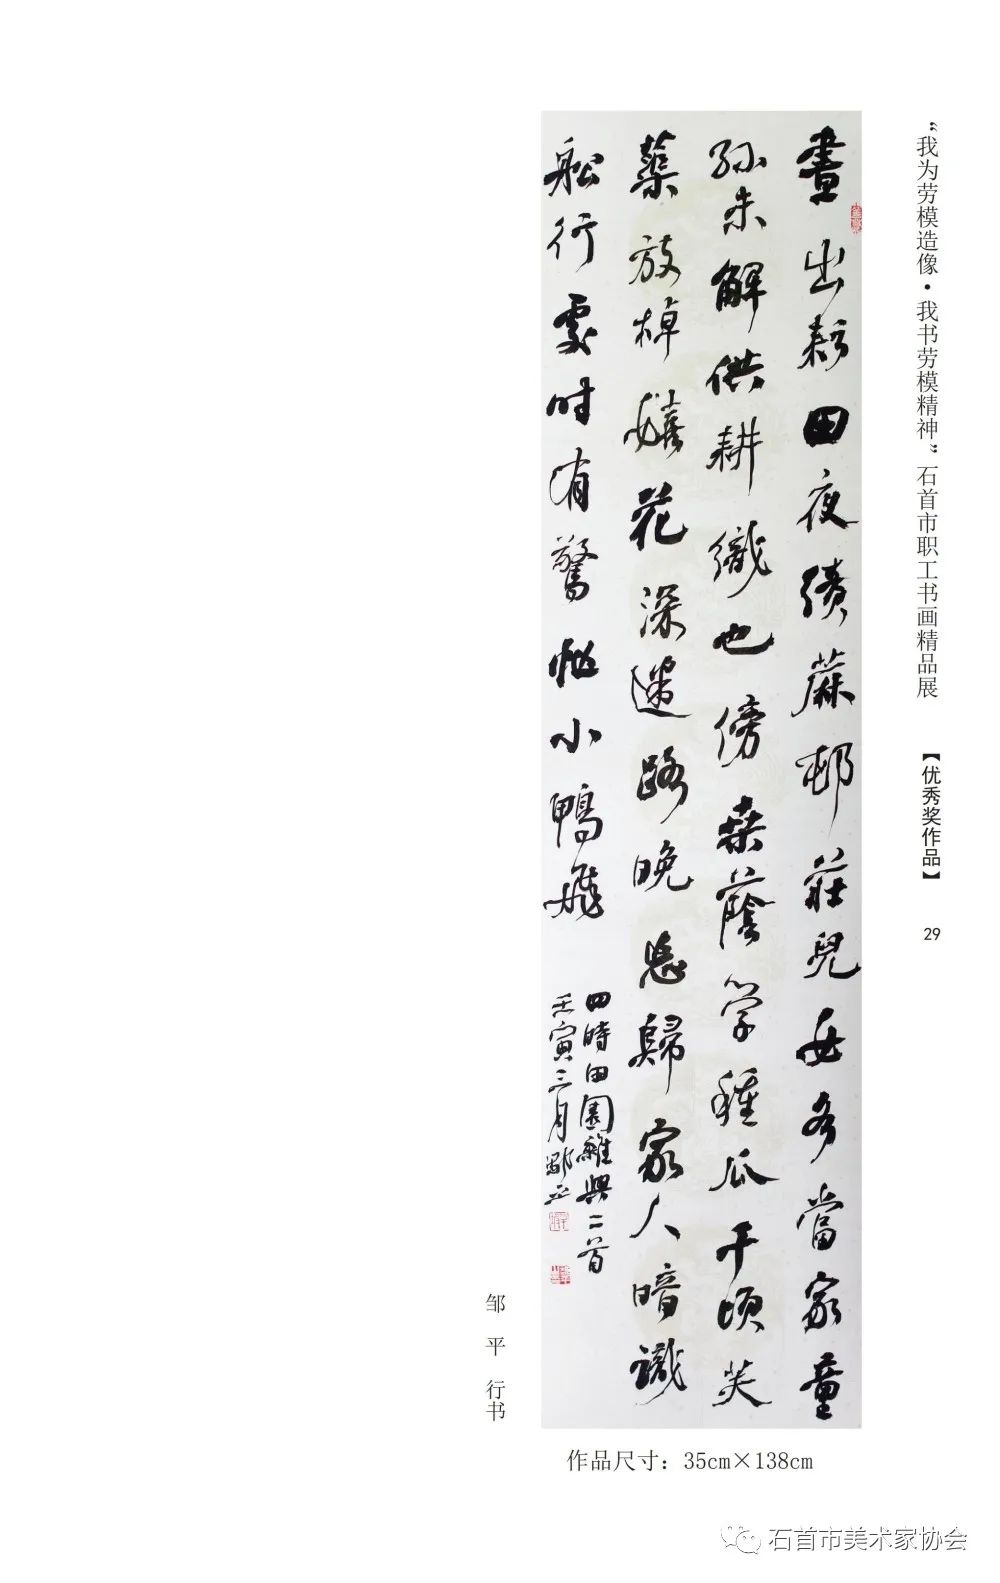 “我为劳模造像·我书劳模精神”石首市职工书画精品展
【优秀奖作品】
29
晝出耘田夜績麻邨莊兒女各當家童
孫未解供耕織也傍桑蔭學種瓜千頃芙
蕖放棹嬉花深迷路晚忘歸家人暗識
船行處時有驚忙小鴨飛
四時田園雜興二首
壬寅三月鄒平
邹平 行书
作品尺寸：35cm×138cm
石首市美术家协会